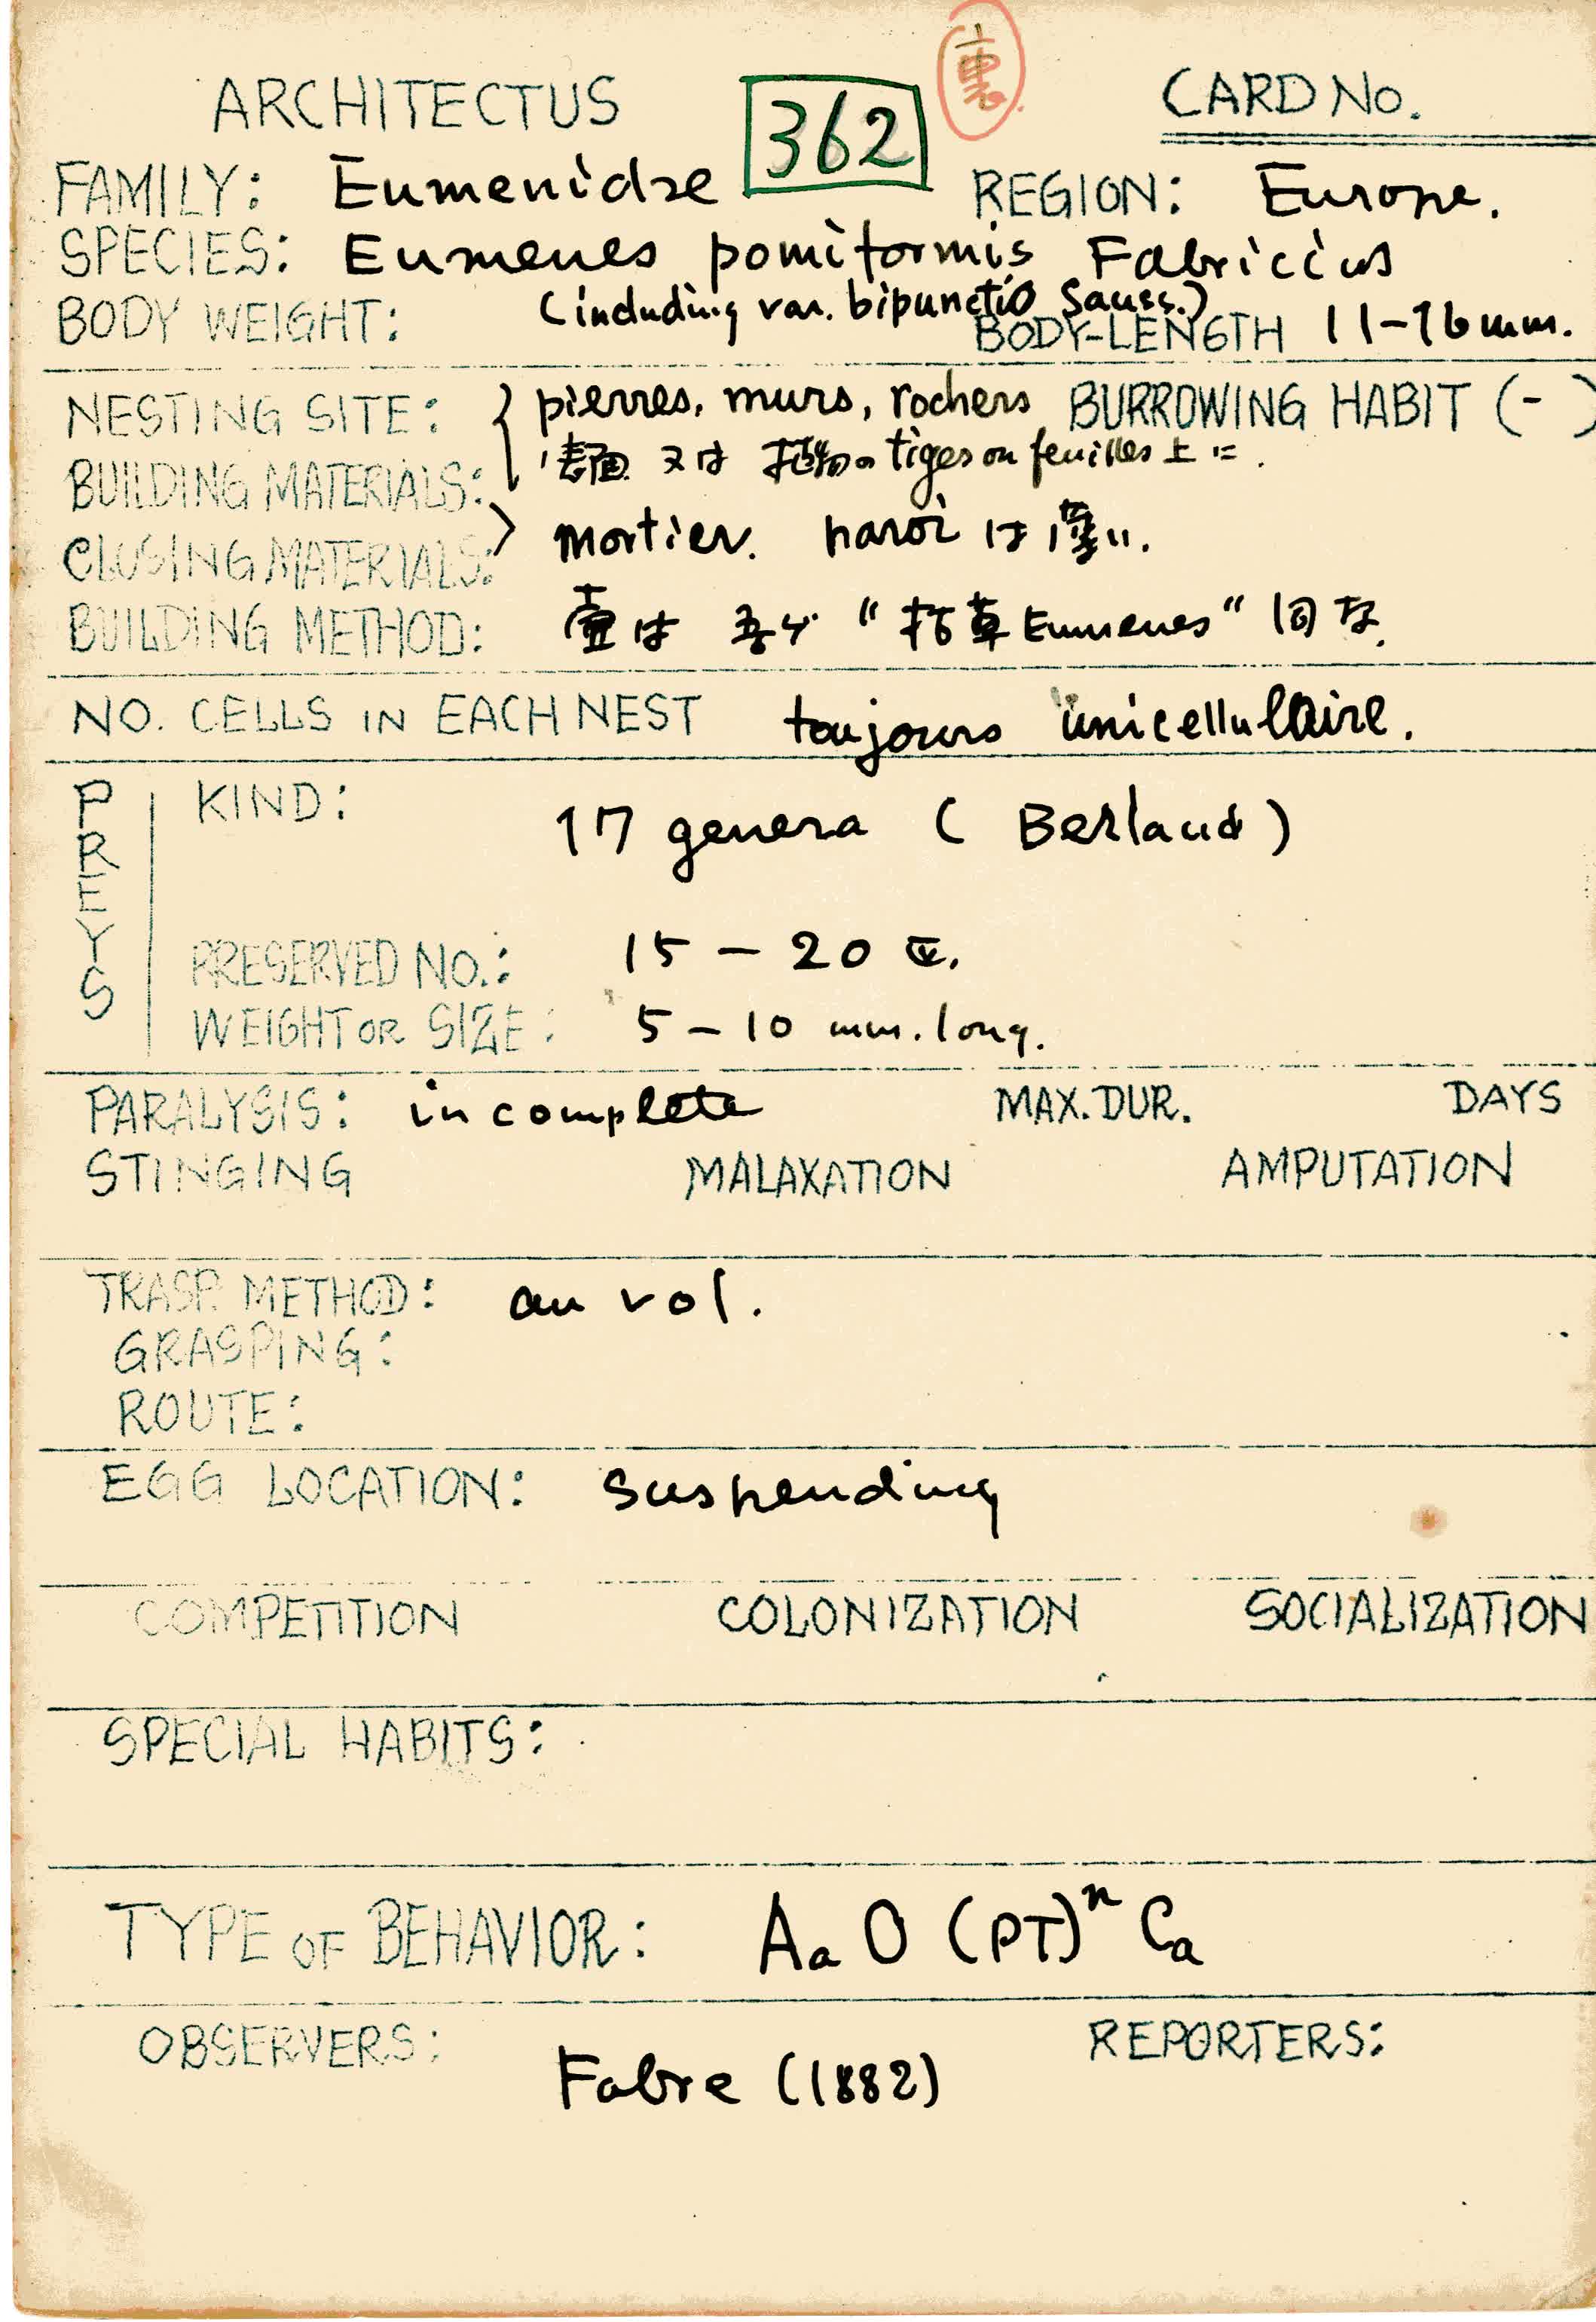 ARCHITECTUS 362 CARD No.
FAMILY: Eumenidae REGION: Europe.
SPECIES: Eumenes pomiformis Fabricius
(including var. bipunctio Sauss.)
BODY WEIGHT: BODY-LENGTH 11-16mm.
NESTING SITE: pierres, murs, rochers, BURROWING HABIT (-)
又は 植物の tiges ou feuilles 上に.
BUILDING MATERIALS:
mortier. paroi は薄い.
CLOSING MATERIALS:
BUILDING METHOD: 壷は Eumenes"
NO. CELLS IN EACH NEST toujours unicellulaire.
PREYS
KIND: 17 genera (Berland)
PRESERVED NO.: 15 - 20
WEIGHT OR SIZE: 5 - 10 mm. long.
PARALYSIS: incomplete MAX. DUR. DAYS
STINGING MALAXATION AMPUTATION
TRASP. METHOD: au vol.
GRASPING:
ROUTE:
EGG LOCATION: Suspending
COMPETITION COLONIZATION SOCIALIZATION
SPECIAL HABITS:
TYPE OF BEHAVIOR: Aa O (PT)ⁿ Ca
OBSERVERS: REPORTERS:
Fabre (1882)